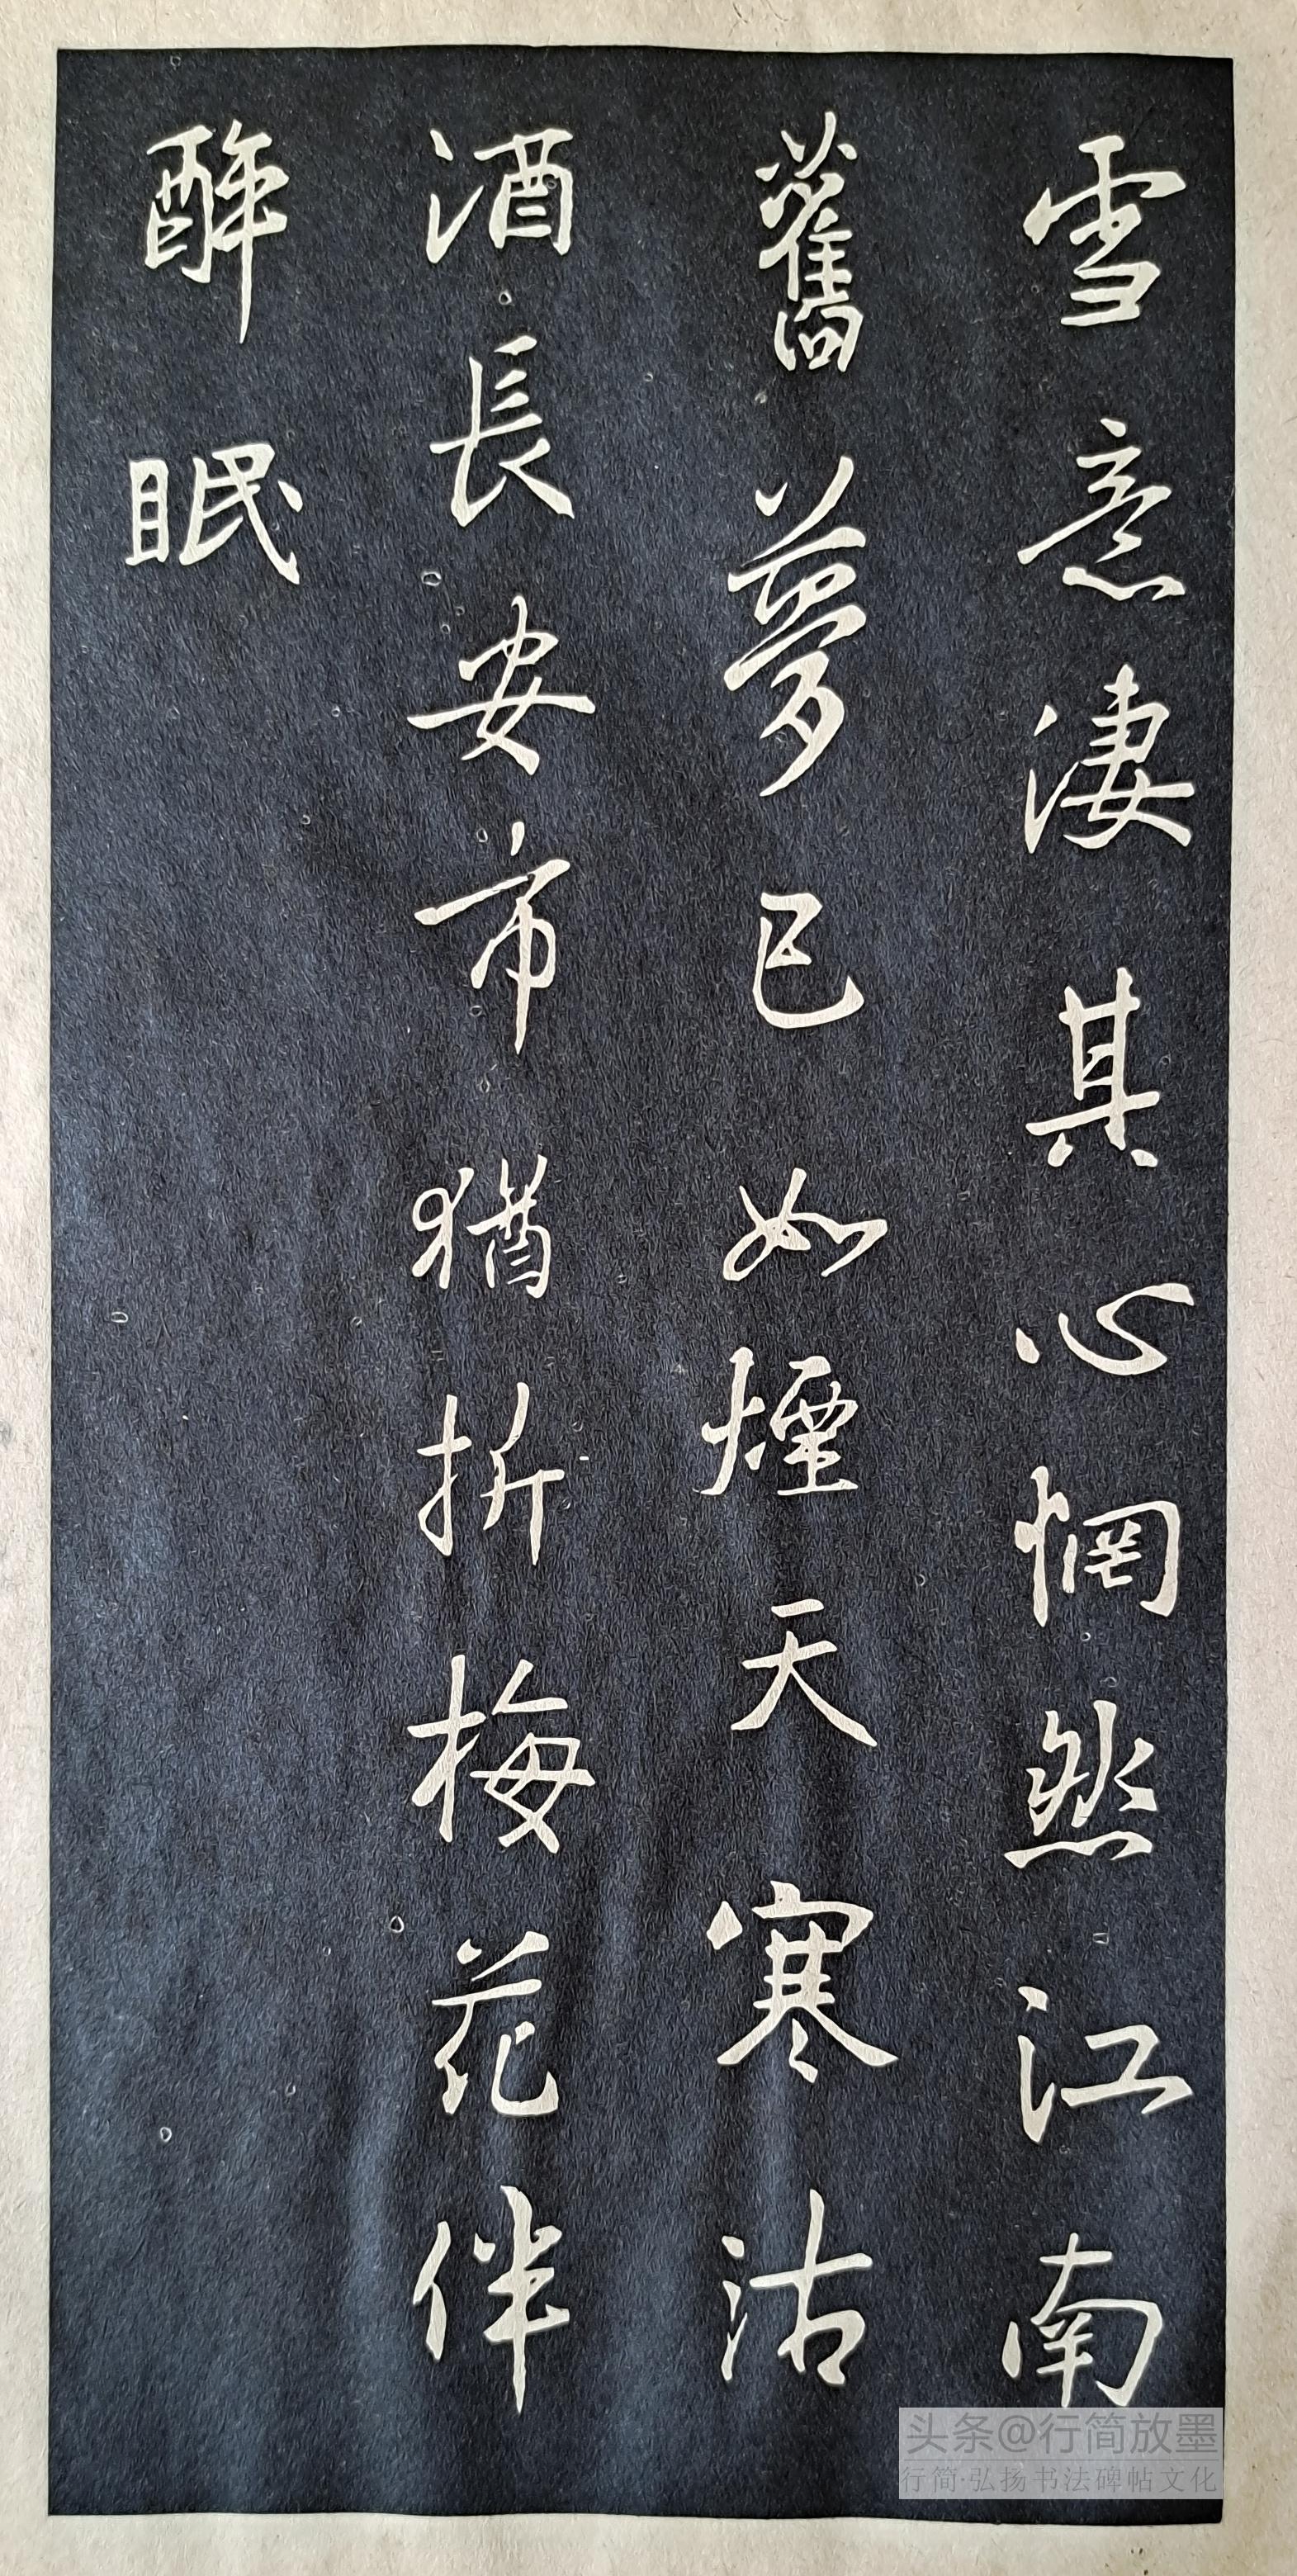 雪意凄其心惘然江南
舊夢已如煙天寒沽
酒長安市猶折梅花伴
醉眠
头条@行简放墨
行简·弘扬书法碑帖文化